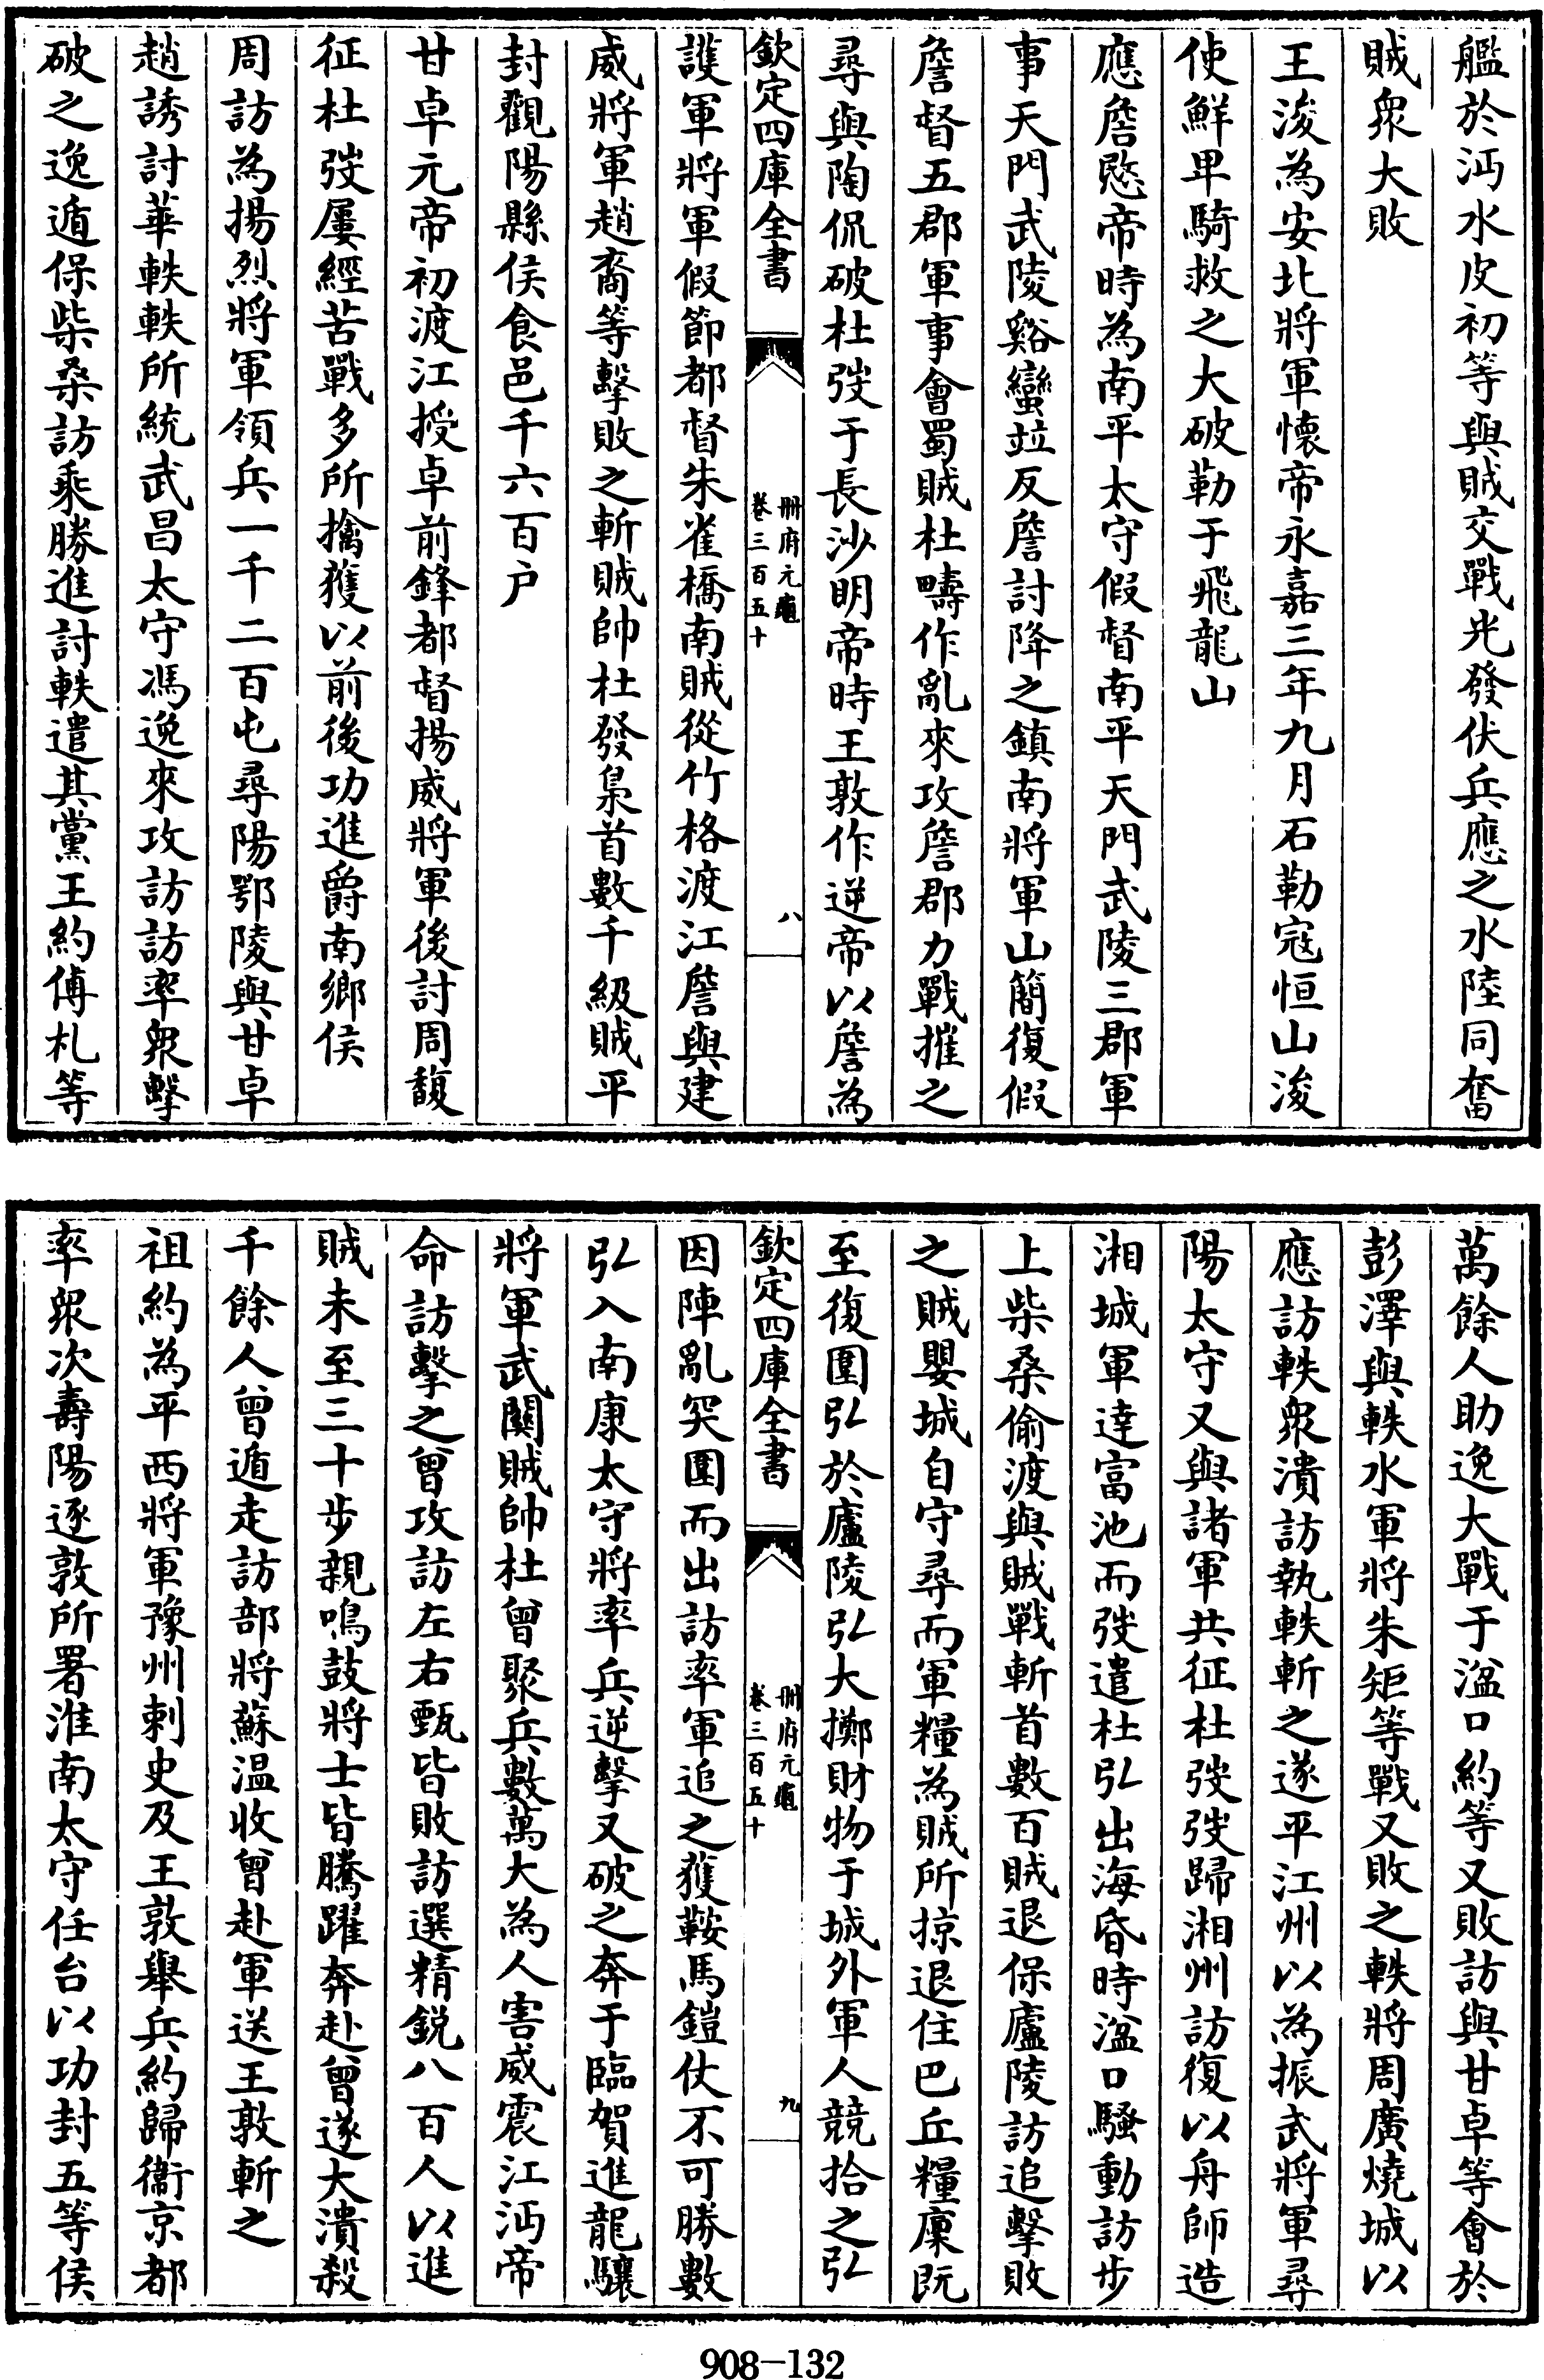 艦於沔水皮初等與賊交戰光發伏兵應之水陸同奮
賊衆大敗
王浚為安北將軍懷帝永嘉三年九月石勒宼恒山浚
使鮮卑騎救之大破勒于飛龍山
應詹愍帝時為南平太守假督南平天門武陵三郡軍
事天門武陵谿蠻竝反詹討降之鎮南將軍山簡復假
詹督五郡軍事會蜀賊杜疇作亂來攻詹郡力戰摧之
尋與陶侃破杜弢于長沙明帝時王敦作逆帝以詹為
欽定四庫全書
冊府元龜
卷三百五十
八
護軍將軍假節都督朱雀橋南賊從竹格渡江詹與建
威將軍趙裔等擊敗之斬賊帥杜發梟首數千級賊平
封觀陽縣侯食邑千六百户
甘卓元帝初渡江授卓前鋒都督揚威將軍後討周馥
征杜弢屢經苦戰多所擒獲以前後功進爵南鄉侯
周訪為揚烈將軍領兵一千二百屯尋陽鄂陵與甘卓
趙誘討華軼軼所統武昌太守馮逸來攻訪訪率衆擊
破之逸遁保柴桑訪乘勝進討軼遣其黨王約傅札等
萬餘人助逸大戰于湓口約等又敗訪與甘卓等會於
彭澤與軼水軍將朱矩等戰又敗之軼將周廣燒城以
應訪軼衆潰訪執軼斬之遂平江州以為振武將軍尋
陽太守又與諸軍共征杜弢弢歸湘州訪復以舟師造
湘城軍達富池而弢遣杜弘出海昏時湓口騷動訪步
上柴桑偷渡與賊戰斬首數百賊退保廬陵訪追擊敗
之賊嬰城自守尋而軍糧為賊所掠退住巴丘糧廩既
至復圍弘於廬陵弘大擲財物于城外軍人競拾之弘
欽定四庫全書
冊府元龜
卷三百五十
九
因陣亂突圍而出訪率軍追之獲鞍馬鎧仗不可勝數
弘入南康太守將率兵逆擊又破之奔于臨賀進龍驤
將軍武闗賊帥杜曾聚兵數萬大為人害威震江沔帝
命訪擊之曾攻訪左右甄皆敗訪選精鋭八百人以進
賊未至三十步親鳴鼓將士皆騰躍奔赴曾遂大潰殺
千餘人曾遁走訪部將蘇温收曾赴軍送王敦斬之
祖約為平西將軍豫州刺史及王敦舉兵約歸衞京都
率衆次壽陽逐敦所署淮南太守任台以功封五等侯
908-132